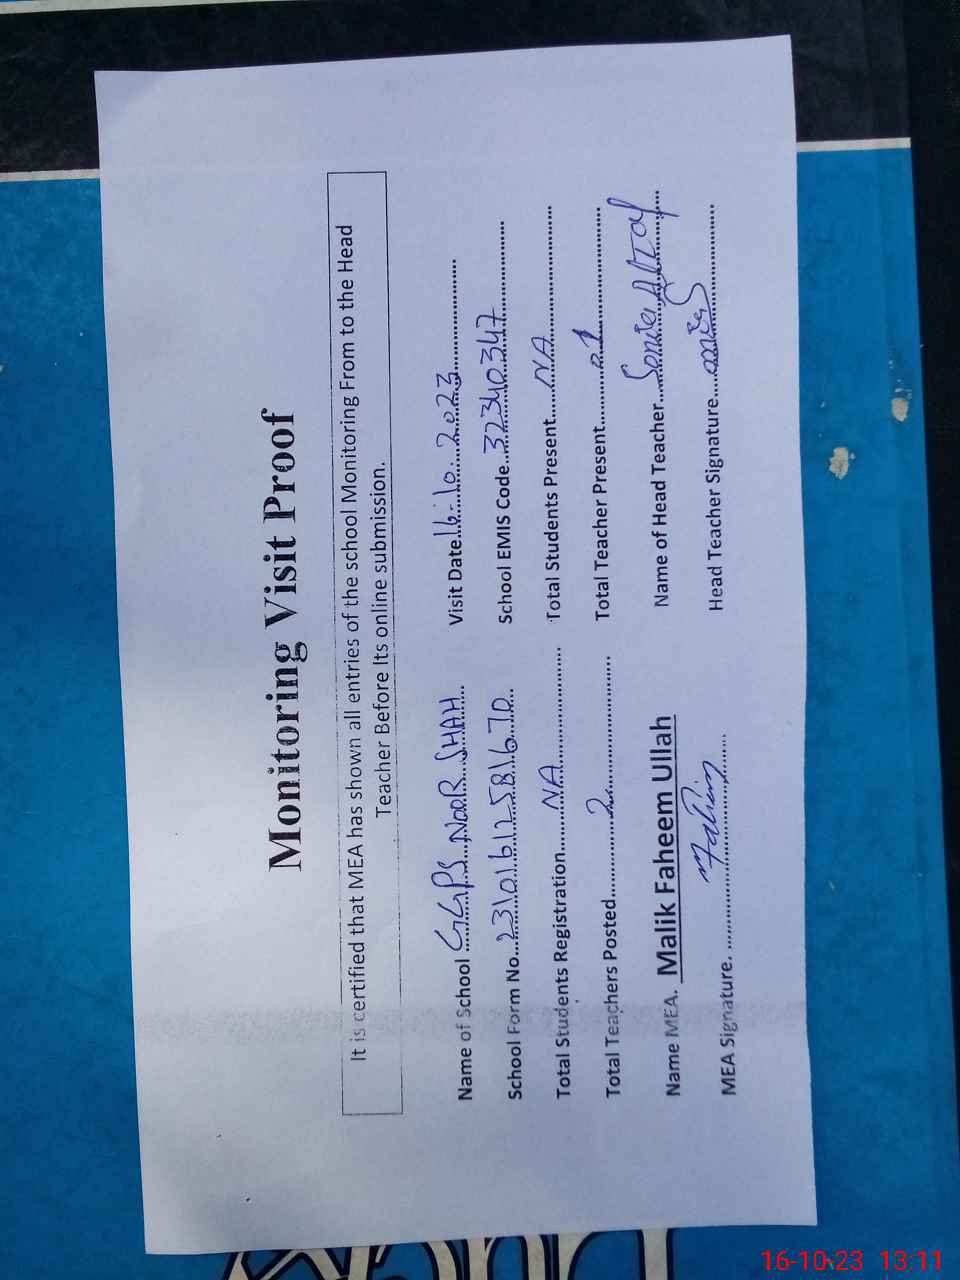 Monitoring Visit Proof
It is certified that MEA has shown all entries of the school Monitoring From to the Head
Teacher Before Its online submission.
Name of School GGPS NOOR SHAH Visit Date 16-10-2023
School Form No. 23101612581670 School EMIS Code 32340347
Total Students Registration NA Total Students Present NA
Total Teachers Posted 2 Total Teacher Present 1
Name MEA. Malik Faheem Ullah Name of Head Teacher Sonia Altaf
MEA Signature. Faheem Head Teacher Signature
16-10-23 13:11